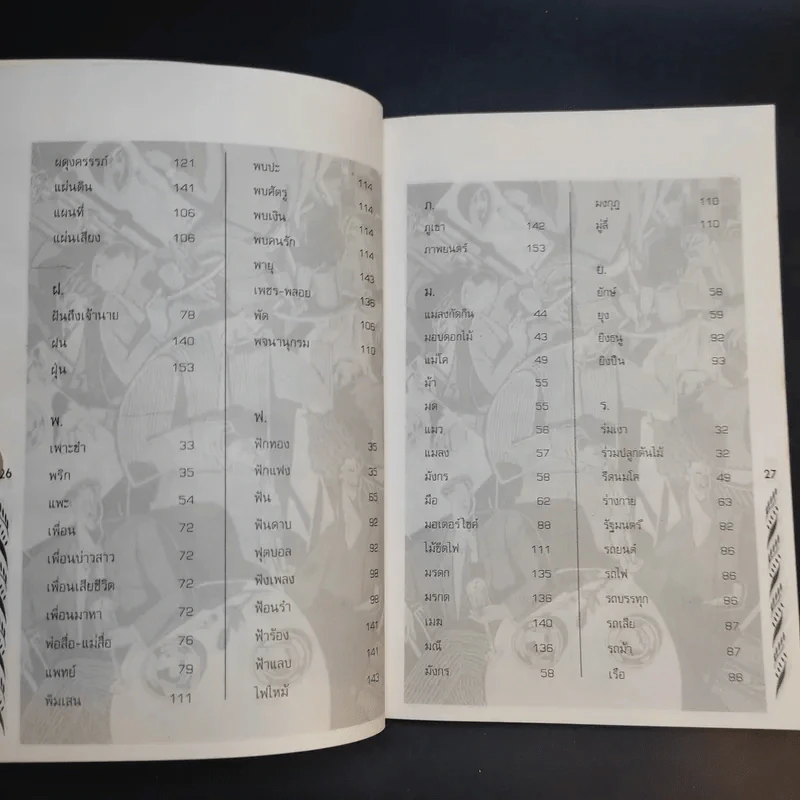 ผดุงครรรภ์ 121
แผ่นดิน 141
แผนที่ 106
แผ่นเสียง 106
ฝ.
ฝันถึงเจ้านาย 78
ฝน 140
ฝุ่น 153
พ.
เพาะชำ 33
พริก 35
แพะ 54
เพื่อน 72
เพื่อนบ่าวสาว 72
เพื่อนเสียชีวิต 72
เพื่อนมาหา 72
พ่อสื่อ-แม่สื่อ 76
แพทย์ 79
พิมเสน 111
พบปะ 114
พบศัตรู 114
พบเงิน 114
พบคนรัก 114
พายุ 143
เพชร-พลอย 136
พัด 106
พจนานุกรม 110
ฟ.
ฟักทอง 35
ฟักแฟง 35
ฟัน 65
ฟันดาบ 92
ฟุตบอล 92
ฟังเพลง 98
ฟ้อนรำ 98
ฟ้าร้อง 141
ฟ้าแลบ 141
ไฟไหม้ 143
26
ภ.
ภูเขา 142
ภาพยนตร์ 153
ม.
แมลงกัดกิน 44
มอบดอกไม้ 43
แม่โค 49
ม้า 55
มด 55
แมว 56
แมลง 57
มังกร 58
มือ 62
มอเตอร์ไซค์ 88
ไม้ขีดไฟ 111
มรดก 135
มรกต 136
เมฆ 140
มณี 136
มังกร 58
มงกุฎ 110
มู่ลี่ 110
ย.
ยักษ์ 58
ยุง 59
ยิงธนู 92
ยิงปืน 93
ร.
ร่มเงา 32
ร่วมปลูกต้นไม้ 32
รีดนมโค 49
ร่างกาย 63
รัฐมนตรี 82
รถยนต์ 86
รถไฟ 86
รถบรรทุก 86
รถเสีย 87
รถม้า 87
เรือ 88
27